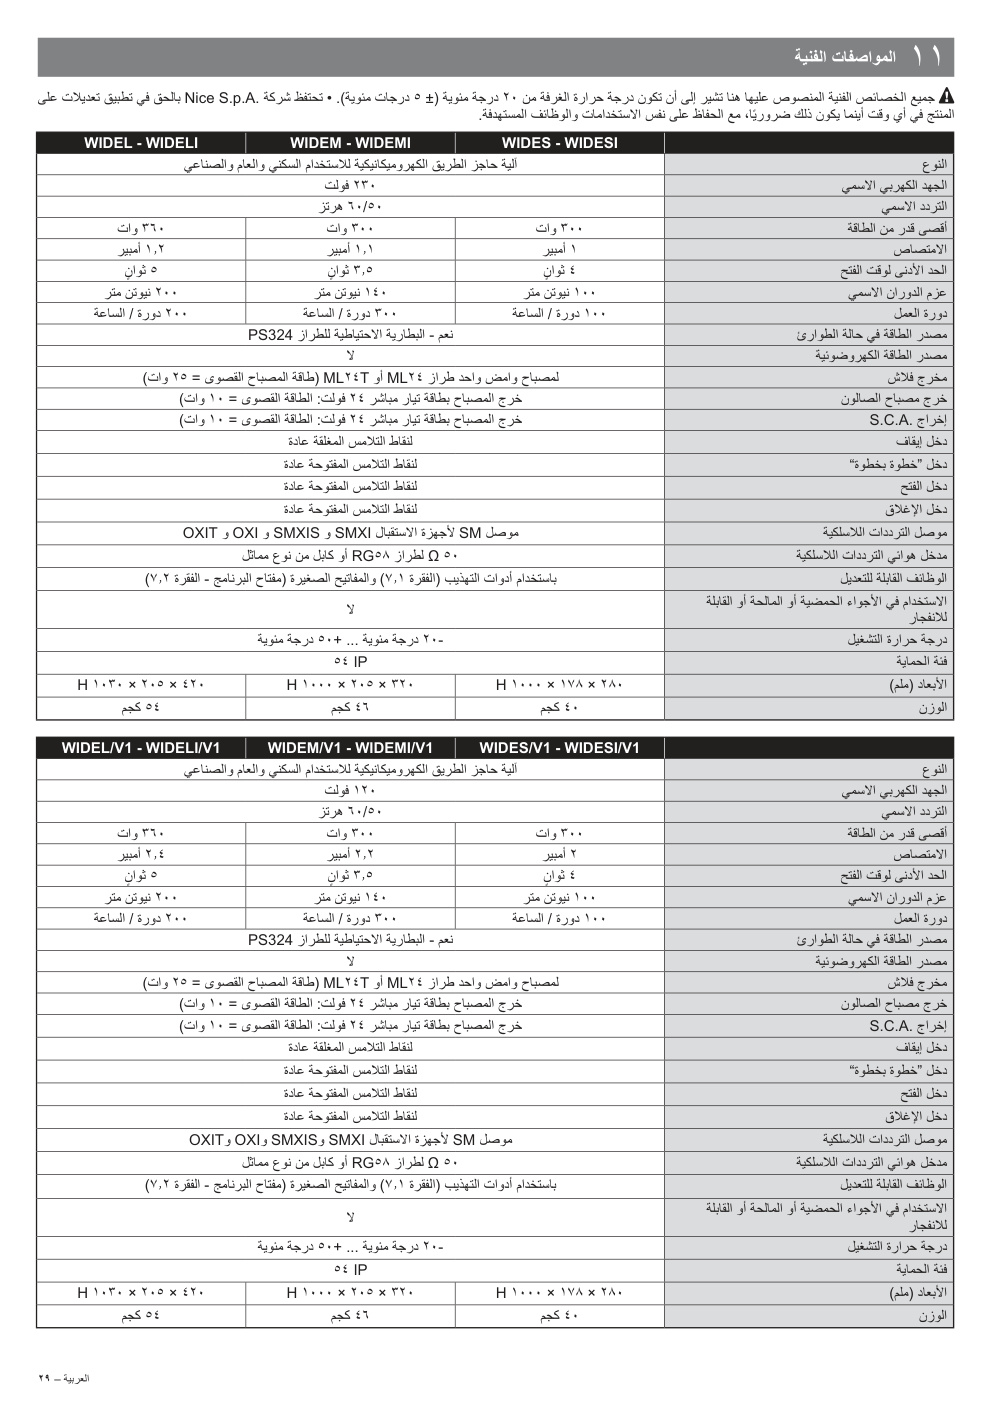 ١١ المواصفات الفنية
جميع الخصائص الفنية المنصوص عليها هنا تشير إلى أن تكون درجة حرارة الغرفة من ٢٠ درجة مئوية (± ٥ درجات مئوية). • تحتفظ شركة Nice S.p.A. بالحق في تطبيق تعديلات على
المنتج في أي وقت أينما يكون ذلك ضروريًا، مع الحفاظ على نفس الاستخدامات والوظائف المستهدفة.
WIDES - WIDESI WIDEM - WIDEMI WIDEL - WIDELI
النوع آلية حاجز الطريق الكهروميكانيكية للاستخدام السكني والعام والصناعي
الجهد الكهربي الاسمي ٢٣٠ فولت
التردد الاسمي ٦٠/٥٠ هرتز
أقصى قدر من الطاقة ٣٠٠ وات ٣٠٠ وات ٣٦٠ وات
الامتصاص ١ أمبير ١,١ أمبير ١,٢ أمبير
الحد الأدنى لوقت الفتح ٤ ثوانٍ ٣,٥ ثوانٍ ٥ ثوانٍ
عزم الدوران الاسمي ١٠٠ نيوتن متر ١٤٠ نيوتن متر ٢٠٠ نيوتن متر
دورة العمل ١٠٠ دورة / الساعة ٣٠٠ دورة / الساعة ٢٠٠ دورة / الساعة
مصدر الطاقة في حالة الطوارئ نعم - البطارية الاحتياطية للطراز PS324
مصدر الطاقة الكهروضوئية لا
مخرج فلاش لمصباح وامض واحد طراز ML٢٤ أو ML٢٤T (طاقة المصباح القصوى = ٢٥ وات)
خرج مصباح الصالون خرج المصباح بطاقة تيار مباشر ٢٤ فولت: الطاقة القصوى = ١٠ وات)
إخراج S.C.A. خرج المصباح بطاقة تيار مباشر ٢٤ فولت: الطاقة القصوى = ١٠ وات)
دخل إيقاف لنقاط التلامس المغلقة عادة
دخل ”خطوة بخطوة“ لنقاط التلامس المفتوحة عادة
دخل الفتح لنقاط التلامس المفتوحة عادة
دخل الإغلاق لنقاط التلامس المفتوحة عادة
موصل الترددات اللاسلكية موصل SM لأجهزة الاستقبال SMXI و SMXIS و OXI و OXIT
مدخل هوائي الترددات اللاسلكية ٥٠ Ω لطراز RG٥٨ أو كابل من نوع مماثل
الوظائف القابلة للتعديل باستخدام أدوات التهذيب (الفقرة ٧,١) والمفاتيح الصغيرة (مفتاح البرنامج - الفقرة ٧,٢)
الاستخدام في الأجواء الحمضية أو المالحة أو القابلة
للانفجار لا
درجة حرارة التشغيل -٢٠ درجة مئوية ... +٥٠ درجة مئوية
فئة الحماية IP ٥٤
الأبعاد (ملم) ٢٨٠ × ١٧٨ × ١٠٠٠ H ٣٢٠ × ٢٠٥ × ١٠٠٠ H ٤٢٠ × ٢٠٥ × ١٠٣٠ H
الوزن ٤٠ كجم ٤٦ كجم ٥٤ كجم
WIDES/V1 - WIDESI/V1 WIDEM/V1 - WIDEMI/V1 WIDEL/V1 - WIDELI/V1
النوع آلية حاجز الطريق الكهروميكانيكية للاستخدام السكني والعام والصناعي
الجهد الكهربي الاسمي ١٢٠ فولت
التردد الاسمي ٦٠/٥٠ هرتز
أقصى قدر من الطاقة ٣٠٠ وات ٣٠٠ وات ٣٦٠ وات
الامتصاص ٢ أمبير ٢,٢ أمبير ٢,٤ أمبير
الحد الأدنى لوقت الفتح ٤ ثوانٍ ٣,٥ ثوانٍ ٥ ثوانٍ
عزم الدوران الاسمي ١٠٠ نيوتن متر ١٤٠ نيوتن متر ٢٠٠ نيوتن متر
دورة العمل ١٠٠ دورة / الساعة ٣٠٠ دورة / الساعة ٢٠٠ دورة / الساعة
مصدر الطاقة في حالة الطوارئ نعم - البطارية الاحتياطية للطراز PS324
مصدر الطاقة الكهروضوئية لا
مخرج فلاش لمصباح وامض واحد طراز ML٢٤ أو ML٢٤T (طاقة المصباح القصوى = ٢٥ وات)
خرج مصباح الصالون خرج المصباح بطاقة تيار مباشر ٢٤ فولت: الطاقة القصوى = ١٠ وات)
إخراج S.C.A. خرج المصباح بطاقة تيار مباشر ٢٤ فولت: الطاقة القصوى = ١٠ وات)
دخل إيقاف لنقاط التلامس المغلقة عادة
دخل ”خطوة بخطوة“ لنقاط التلامس المفتوحة عادة
دخل الفتح لنقاط التلامس المفتوحة عادة
دخل الإغلاق لنقاط التلامس المفتوحة عادة
موصل الترددات اللاسلكية موصل SM لأجهزة الاستقبال SMXI وSMXIS وOXI وOXIT
مدخل هوائي الترددات اللاسلكية ٥٠ Ω لطراز RG٥٨ أو كابل من نوع مماثل
الوظائف القابلة للتعديل باستخدام أدوات التهذيب (الفقرة ٧,١) والمفاتيح الصغيرة (مفتاح البرنامج - الفقرة ٧,٢)
الاستخدام في الأجواء الحمضية أو المالحة أو القابلة
للانفجار لا
درجة حرارة التشغيل -٢٠ درجة مئوية ... +٥٠ درجة مئوية
فئة الحماية IP ٥٤
الأبعاد (ملم) ٢٨٠ × ١٧٨ × ١٠٠٠ H ٣٢٠ × ٢٠٥ × ١٠٠٠ H ٤٢٠ × ٢٠٥ × ١٠٣٠ H
الوزن ٤٠ كجم ٤٦ كجم ٥٤ كجم
العربية – ٢٩